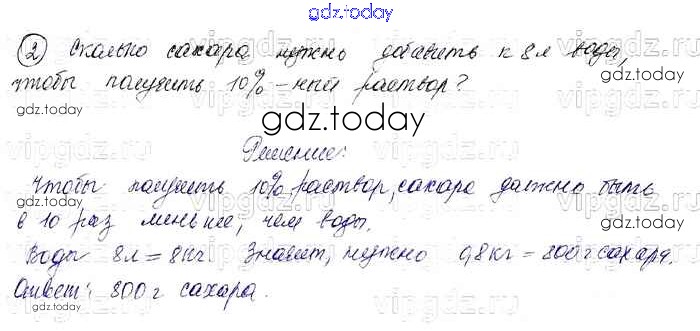 gdz.today
② Сколько сахара нужно добавить к 8л воды,
чтобы получить 10%-ный раствор?
gdz.today
gdz.today
gdz.today
Решение:
Чтобы получить 10% раствор, сахара должно быть
в 10 раз меньше, чем воды.
gdz.today
Воды 8л = 8кг Значит, нужно 0,8кг = 800г сахара.
Ответ: 800г сахара.
gdz.today
gdz.today